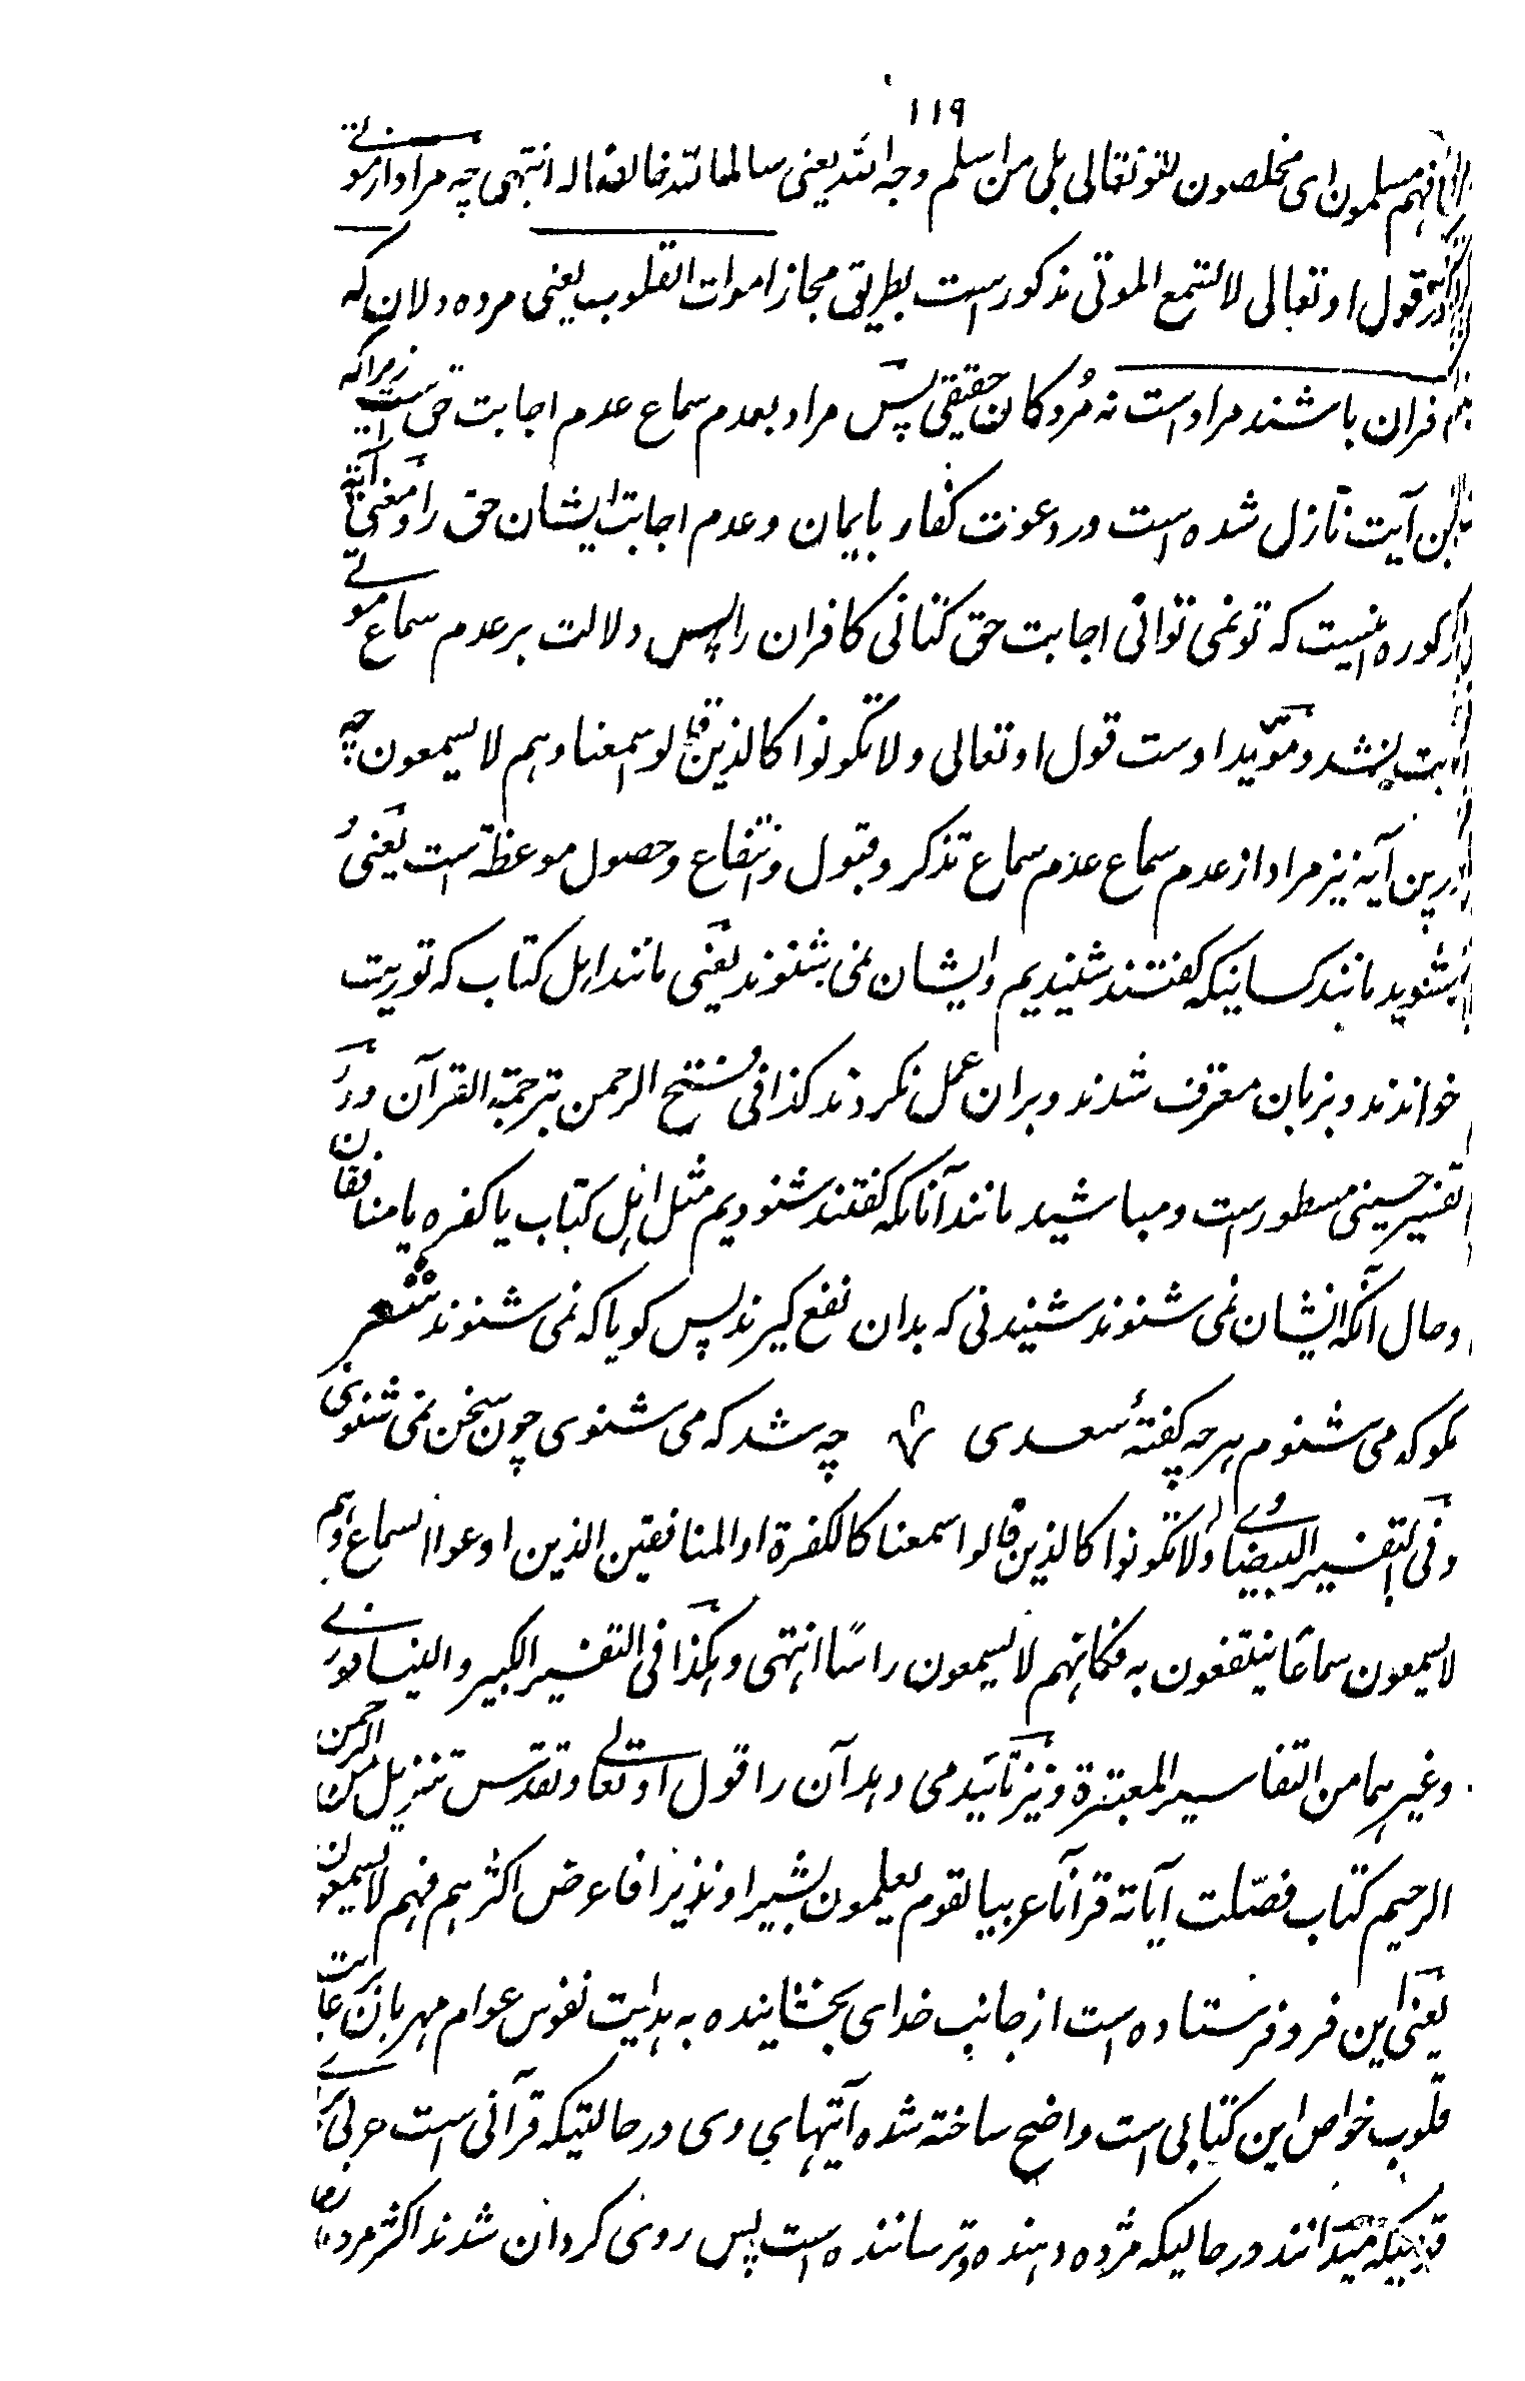 ۱۱۹
فهم مسلمون ای مخلصون لقوله تعالی بلی من اسلم وجه الله یعنی سالما لله خالصا له انتهی چه مراد از موتے
در قول او تعالی لا تسمع الموتی مذکور است بطریق مجاز اموات القلوب یعنی مرده دلان که
کافران باشند مراد است نه مُردکان حقیقی پس مراد بعدم سماع عدم اجابت حق است زیراکه
این آیت نازل شده است در دعوت کفار بایمان و عدم اجابت ایشان حق را و معنی آیة
مذکوره اینست که تو نمی توانی اجابت حق کنانی کافران را پس دلالت بر عدم سماع موتے
ثابت نشد و مؤید اوست قول او تعالی و لا تکونوا کالذین قالوا سمعنا و هم لا یسمعون چه
درین آیه نیز مراد از عدم سماع عدم سماع تذکر و قبول و انتفاع و حصول موعظة است یعنی و
مشوید مانند کسانیکه کفتند شنیدیم و ایشان نمی شنوند یعنی مانند اهل کتاب که توریت
خواندند و بزبان معترف شدند و بران عمل نکردند کذا فی فتح الرحمن بترجمة القرآن و در
تفسیر حسینی مسطور است و مباشید مانند آنانکه کفتند شنودیم مثل اهل کتاب یا کفره یا منافقان
و حال آنکه ایشان نمی شنوند شنیدنی که بدان نفع کیرند پس کویا که نمی شنوند شعر
مکو که می شنوم هرچه کفتۀ سعدی چه شد که می شنوی چون سخن نمی شنوی
و فی التفسیر البیضاوے و لا تکونوا کالذین قالوا سمعنا کالکفرة او المنافقین الذین ادعوا السماع و هم
لا یسمعون سماعًا ینتفعون به فکانهم لا یسمعون راسًا انتهی و هکذا فی التفسیر الکبیر و النیسابورے
و غیرهما من التفاسیر المعتبرة و نیز تائید می دهد آن را قول او تعالے و تقدس تنزیل من الرحمن
الرحیم کتاب فصّلت آیاته قرآنا عربیا لقوم یعلمون بشیرا و نذیرا فاعرض اکثرهم فهم لا یسمعون
یعنی این فرو فرستاده است از جانب خدای بخشاینده به هدایت نفوس عوام مهربان برعایت
قلوب خواص این کتابی است واضح ساخته شده آیتهای وی در حالتیکه قرآنی است عربی برائے
قومیکه میدانند در حالیکه مژده دهنده و ترسانند ه است پس روی کردان شدند اکثر مردمان